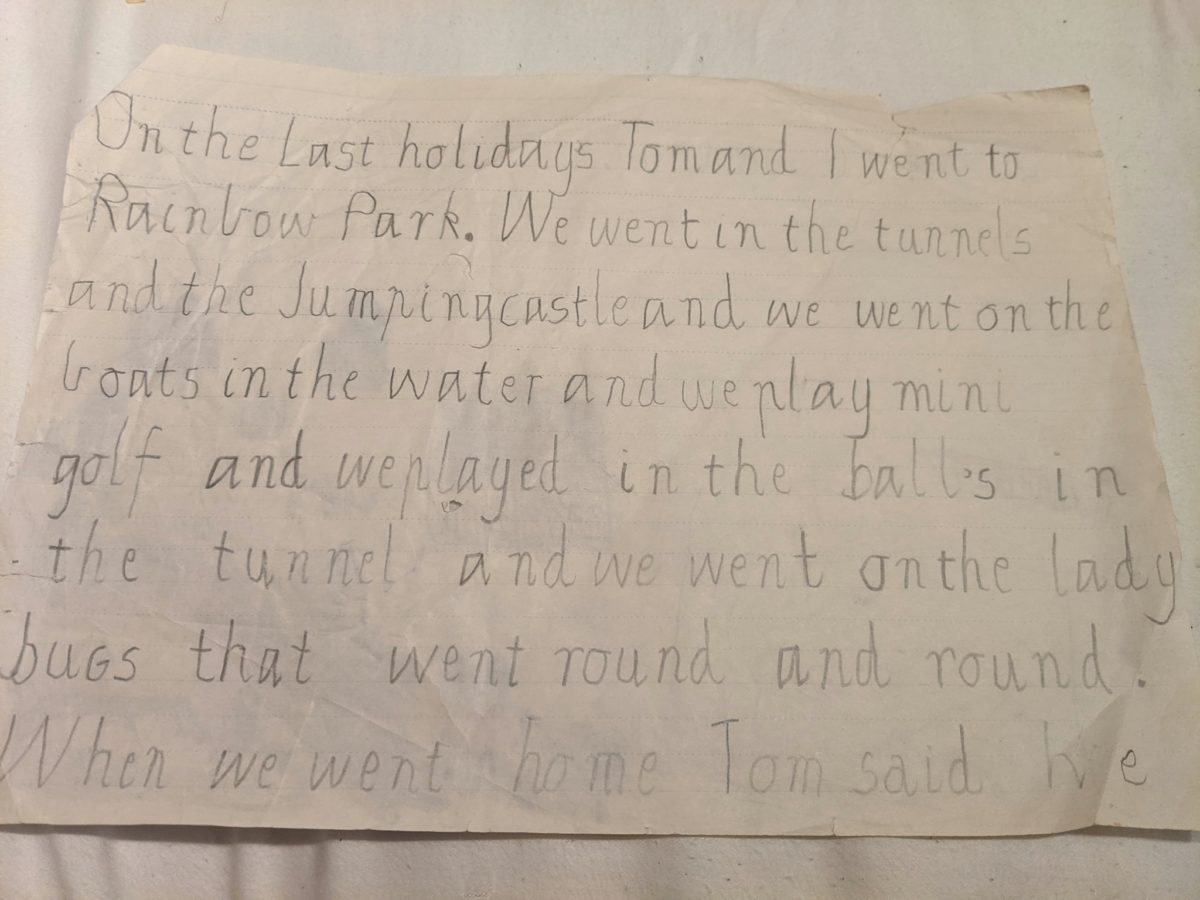 On the Last holidays Tom and I went to
Rainbow Park. We went in the tunnels
and the Jumping castle and we went on the
boats in the water and we play mini
golf and we played in the ball's in
the tunnel and we went on the lady
bugs that went round and round.
When we went home Tom said he